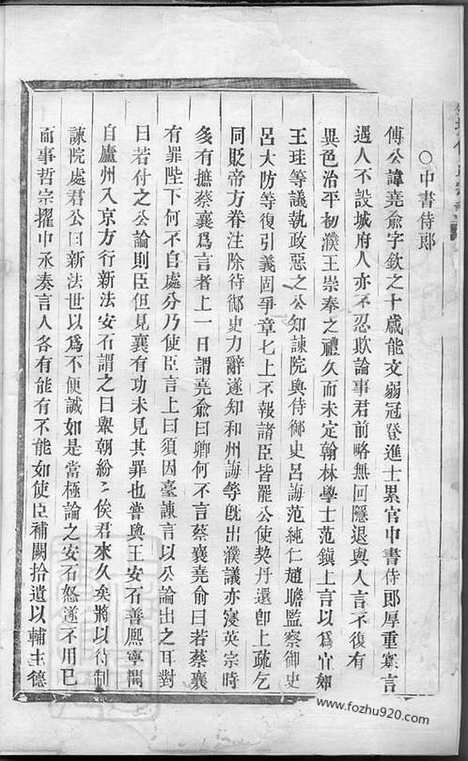 ○中書侍郎
傅公諱堯俞字欽之十歲能文弱冠登進士累官中書侍郎厚重寡言
遇人不設城府人亦不忍欺論事君前略無回隱退與人言不復有
異色治平初濮王崇奉之禮久而未定翰林學士范鎮上言以為宜如
王珪等議執政惡之公知諫院與侍御史呂誨范純仁趙瞻監察御史
呂大防等復引義固爭章七上不報諸臣皆罷公使契丹還卽上疏乞
同貶帝方眷注除待御史力辭遂知和州誨等旣出濮議亦寑英宗時
多有摭蔡襄爲言者上一日謂堯俞曰卿何不言蔡襄堯俞曰若蔡襄
有罪陛下何不自處分乃使臣言上曰須因臺諫言以公論出之耳對
曰若付之公論則臣但見襄有功未見其罪也嘗與王安石善熙寧間
自廬州入京方行新法安石謂之曰眾朝紛〻俟君來久矣將以待制
諫院處君公曰新法世以爲不便誠如是當極論之安石怒遂不用已
而事哲宗擢中丞奏言人各有能有不能如使臣補闕拾遺以輔主德
www.fozhu920.com